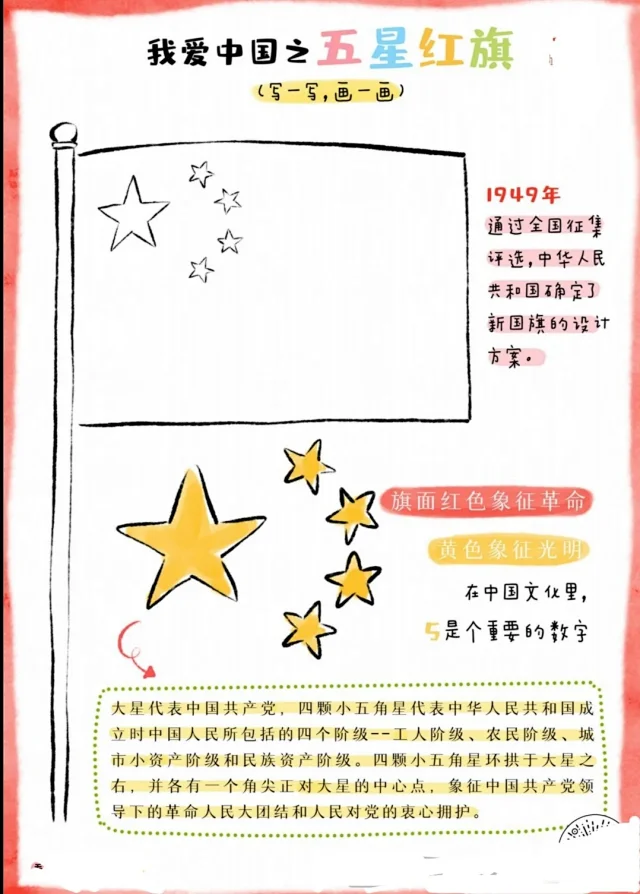 我爱中国之五星红旗
(写一写,画一画)
1949年
通过全国征集
评选,中华人民
共和国确定了
新国旗的设计
方案。
旗面红色象征革命
黄色象征光明
在中国文化里,
5是个重要的数字
大星代表中国共产党，四颗小五角星代表中华人民共和国成
立时中国人民所包括的四个阶级--工人阶级、农民阶级、城
市小资产阶级和民族资产阶级。四颗小五角星环拱于大星之
右，并各有一个角尖正对大星的中心点，象征中国共产党领
导下的革命人民大团结和人民对党的衷心拥护。